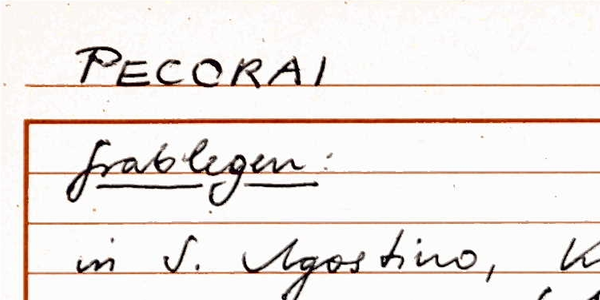 PECORAI
Grablegen:
in S. Agostino, K